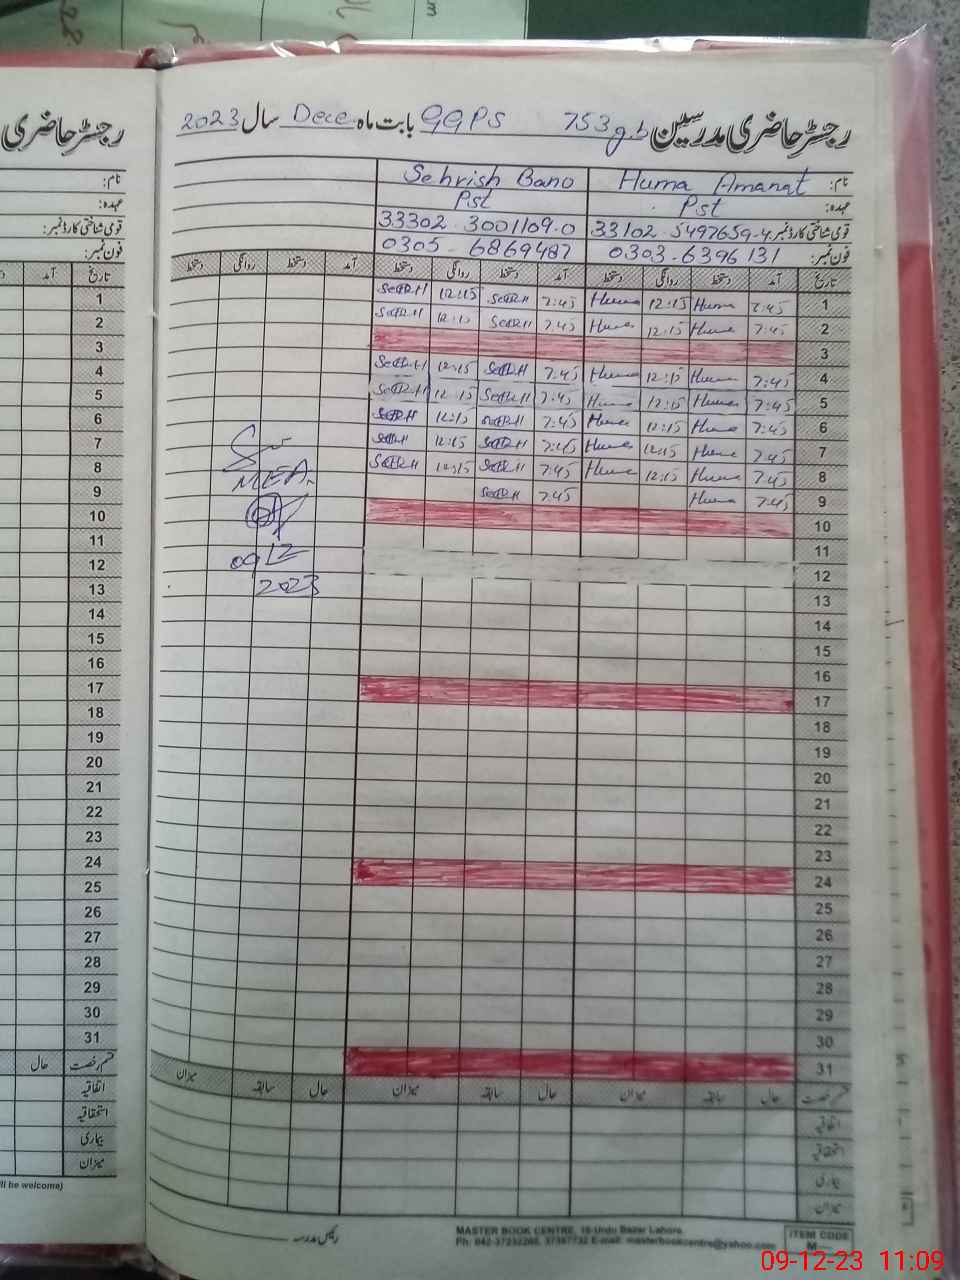 رجسٹر حاضری مدرسین 753 gb GGPS بابت ماہ Dece سال 2023
نام: Huma Amanat Sehrish Bano
عہدہ: Pst Pst
قومی شناختی کارڈ نمبر: 33102-5497659-4 33302-3001109-0
فون نمبر: 0303-6396131 0305-6869487
تاریخ آمد دستخط روانگی دستخط آمد دستخط روانگی دستخط آمد دستخط روانگی دستخط
1 7:45 Huma 12:15 Huma 7:45 12:15
2 7:45 Huma 12:15 Huma 7:45 12:15
3
4 7:45 Huma 12:15 Huma 7:45 12:15
5 7:45 Huma 12:15 Huma 7:45 12:15
6 7:45 Huma 12:15 Huma 7:45 12:15
7 7:45 Huma 12:15 Huma 7:45 12:15
8 7:45 Huma 12:15 Huma 7:45 12:15
9 7:45 Huma 7:45
10
11
12
13
14
15
16
17
18
19
20
21
22
23
24
25
26
27
28
29
30
31
MEA
09 12
2023
قسم رخصت حال سابقہ میزان حال سابقہ میزان حال سابقہ میزان
اتفاقیہ
استحقاقیہ
بیماری
میزان
رئیس مدرسہ
MASTER BOOK CENTRE, 16-Urdu Bazar Lahore
Ph: 042-37232266, 37367732 E-mail: masterbookcentre@yahoo.com
ITEM CODE
M
رجسٹر حاضری
نام:
عہدہ:
قومی شناختی کارڈ نمبر:
فون نمبر:
تاریخ آمد
1
2
3
4
5
6
7
8
9
10
11
12
13
14
15
16
17
18
19
20
21
22
23
24
25
26
27
28
29
30
31
قسم رخصت حال
اتفاقیہ
استحقاقیہ
بیماری
میزان
ll be welcome)
09-12-23 11:09